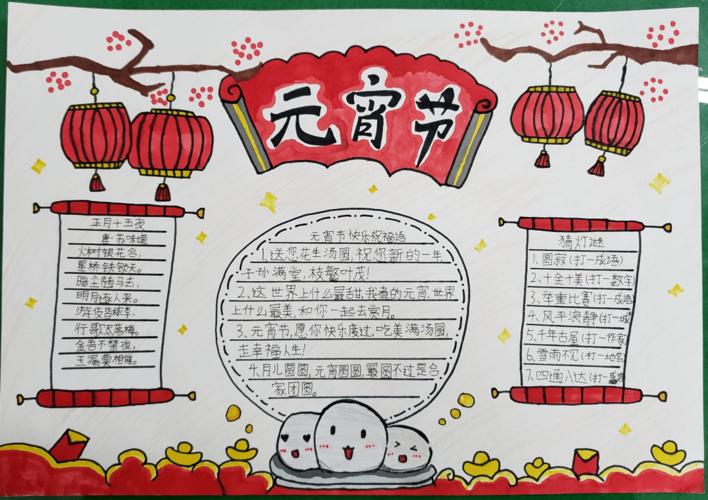 元宵节
正月十五夜
唐·苏味道
火树银花合,
星桥铁锁开。
暗尘随马去,
明月逐人来。
游伎皆秾李,
行歌尽落梅。
金吾不禁夜,
玉漏莫相催。
元宵节快乐祝福语
1、送您花生汤圆,祝您新的一年
子孙满堂,枝繁叶茂!
2、这世界上什么最甜,我煮的元宵,世界
上什么最美,和你一起去赏月。
3、元宵节,愿你快乐度过,吃美满汤圆,
走幸福人生!
4、月儿圆圆,元宵圆圆,最圆不过是合
家团圆。
猜灯谜
1、圆寂(打一成语)
2、十全十美(打一数字)
3、举重比赛(打一成语)
4、风平浪静(打一城
5、千年古屋(打一作家
6、雪雨不见(打一地名
7、四通八达(打一